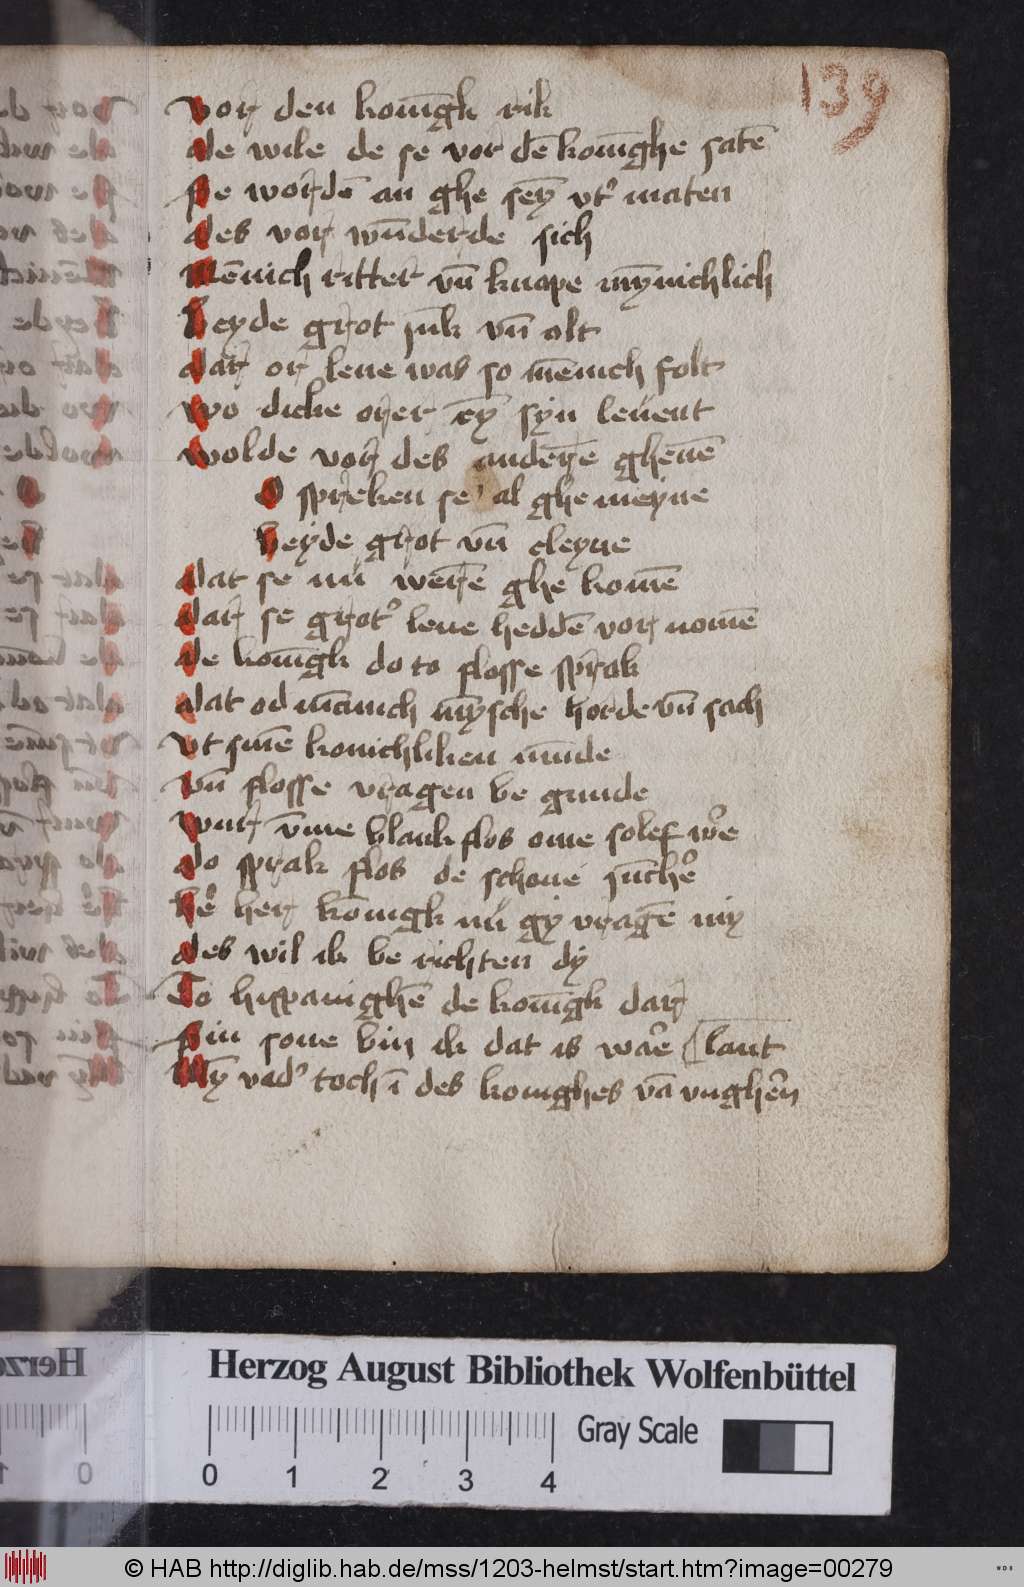 139
Vor den konīgk rik
de wile de se vor dē konīghe satē
Se wordē an ghe seȳ vt' maten
des vor wūderde sich
Mēnich ritter vn̄ knape mȳnichlich
Beyde grot jūk vn̄ olt
dar or leue was so mēnich folt
wo dicke orer eȳ syn leuent
wolde vor des anderē gheuē
O spreken se al ghe meyne
Beyde grot vn̄ cleyne
dat se nu werē ghe komē
dar se grot' leue heddē vor nomē
de konīgk do to flosse sprak
dat od mānich mȳsche horde vn̄ sach
vt sinē konichliken mūde
vn̄ flosse vragen be gunde
wur vm̄e blankflos ome solef we
do sprak flos de schone jūche
he her kōnigk nu gy vragē my
des wil ik be richten dy
To hispanighē de konīgk dar
Sin sone bin ik dat is war lant
Mȳ vad' toch ī des konighes vā vnghern
Herzog August Bibliothek Wolfenbüttel
Gray Scale
0 1 2 3 4
© HAB http://diglib.hab.de/mss/1203-helmst/start.htm?image=00279